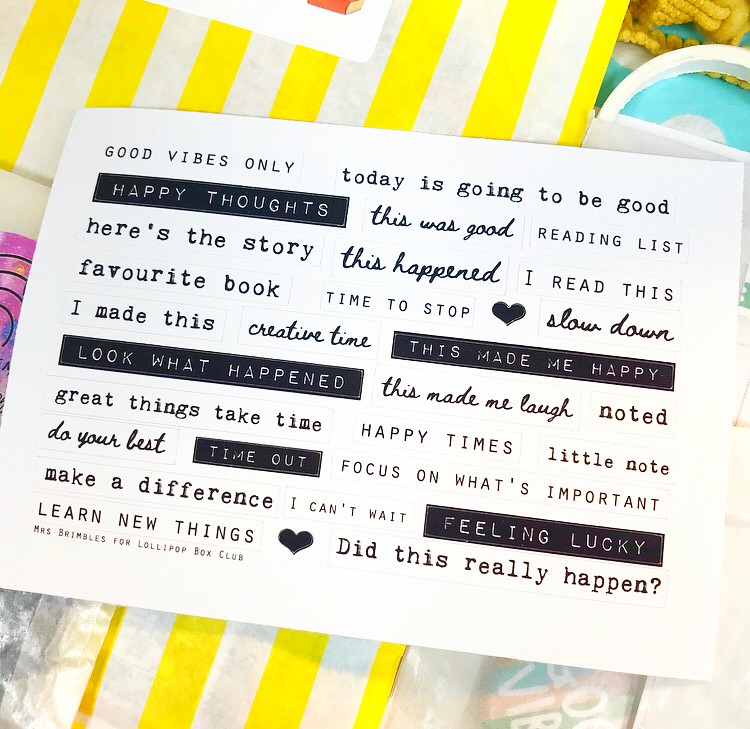 GOOD VIBES ONLY
today is going to be good
HAPPY THOUGHTS
this was good
READING LIST
here's the story
this happened
I READ THIS
favourite book
TIME TO STOP
slow down
I made this
creative time
THIS MADE ME HAPPY
LOOK WHAT HAPPENED
this made me laugh
noted
great things take time
HAPPY TIMES
little note
do your best
TIME OUT
FOCUS ON WHAT'S IMPORTANT
make a difference
I CAN'T WAIT
FEELING LUCKY
LEARN NEW THINGS
Did this really happen?
MRS BRIMBLES FOR LOLLIPOP BOX CLUB